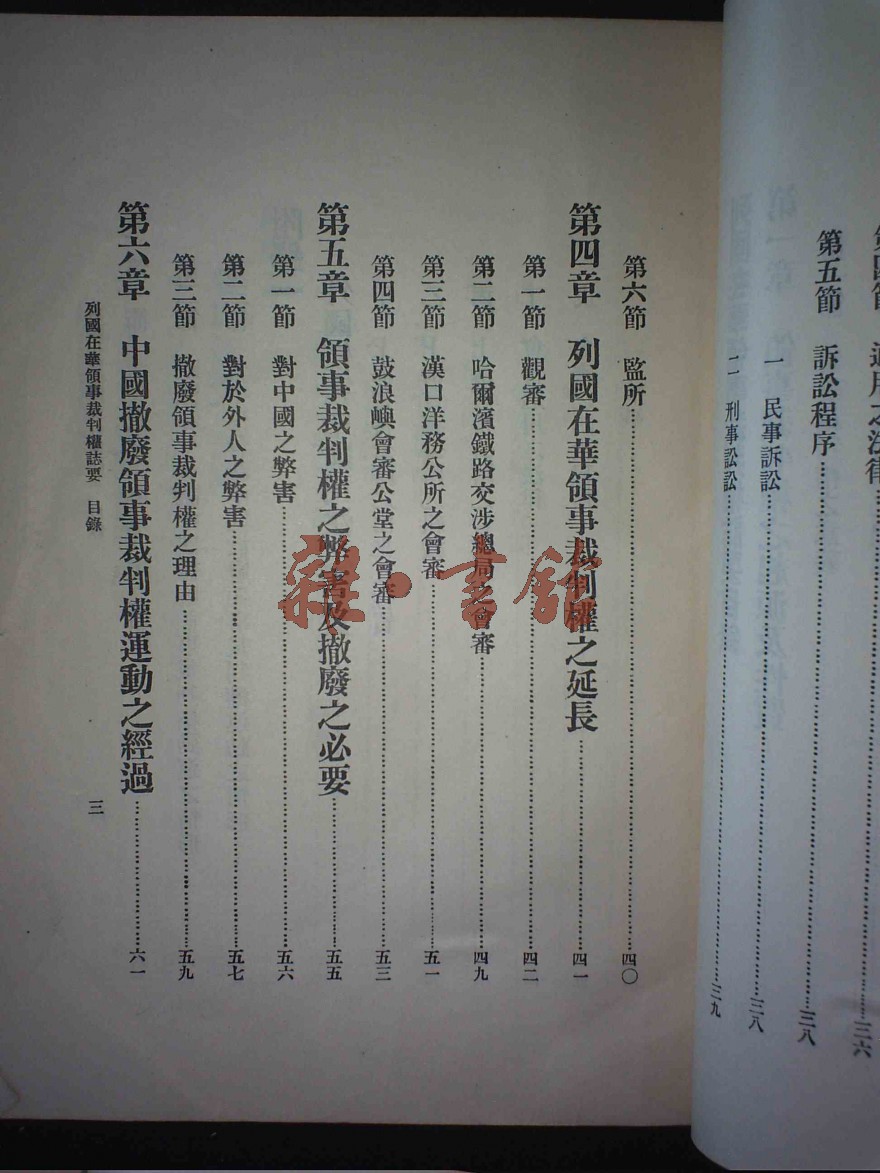 適用之法律……三六
第五節　訴訟程序……三八
一　民事訴訟……三八
二　刑事訟訟……三九
第六節　監所……四〇
第四章　列國在華領事裁判權之延長……四一
第一節　觀審……四二
第二節　哈爾濱鐵路交涉總局之會審……四九
第三節　漢口洋務公所之會審……五一
第四節　鼓浪嶼會審公堂之會審……五三
第五章　領事裁判權之弊害及撤廢之必要……五五
第一節　對中國之弊害……五六
第二節　對於外人之弊害……五七
第三節　撤廢領事裁判權之理由……五九
第六章　中國撤廢領事裁判權運動之經過……六一
列國在華領事裁判權誌要　目錄　三
雜·書館